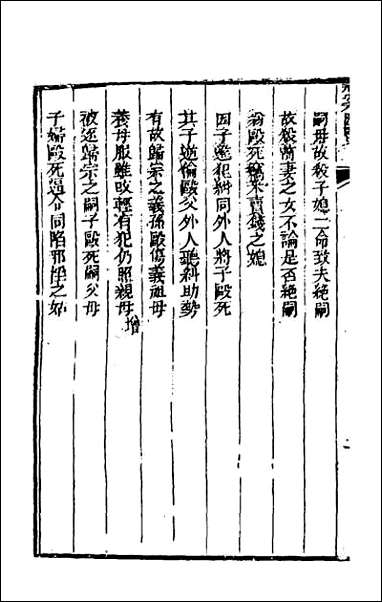 嗣母故殺子媳二命致夫絶嗣
故殺前妻之女不論是否絶嗣
翁毆死竊米賣錢之媳
因子遂犯糾同外人將子毆死
其子逆倫毆父外人聽糾助勢
有故歸宗之義孫毆傷義祖母
養母服雖改輕有犯仍照親母 增
被逐歸宗之嗣子毆死嗣父母
子婦毆死逼令同陷邪淫之姑